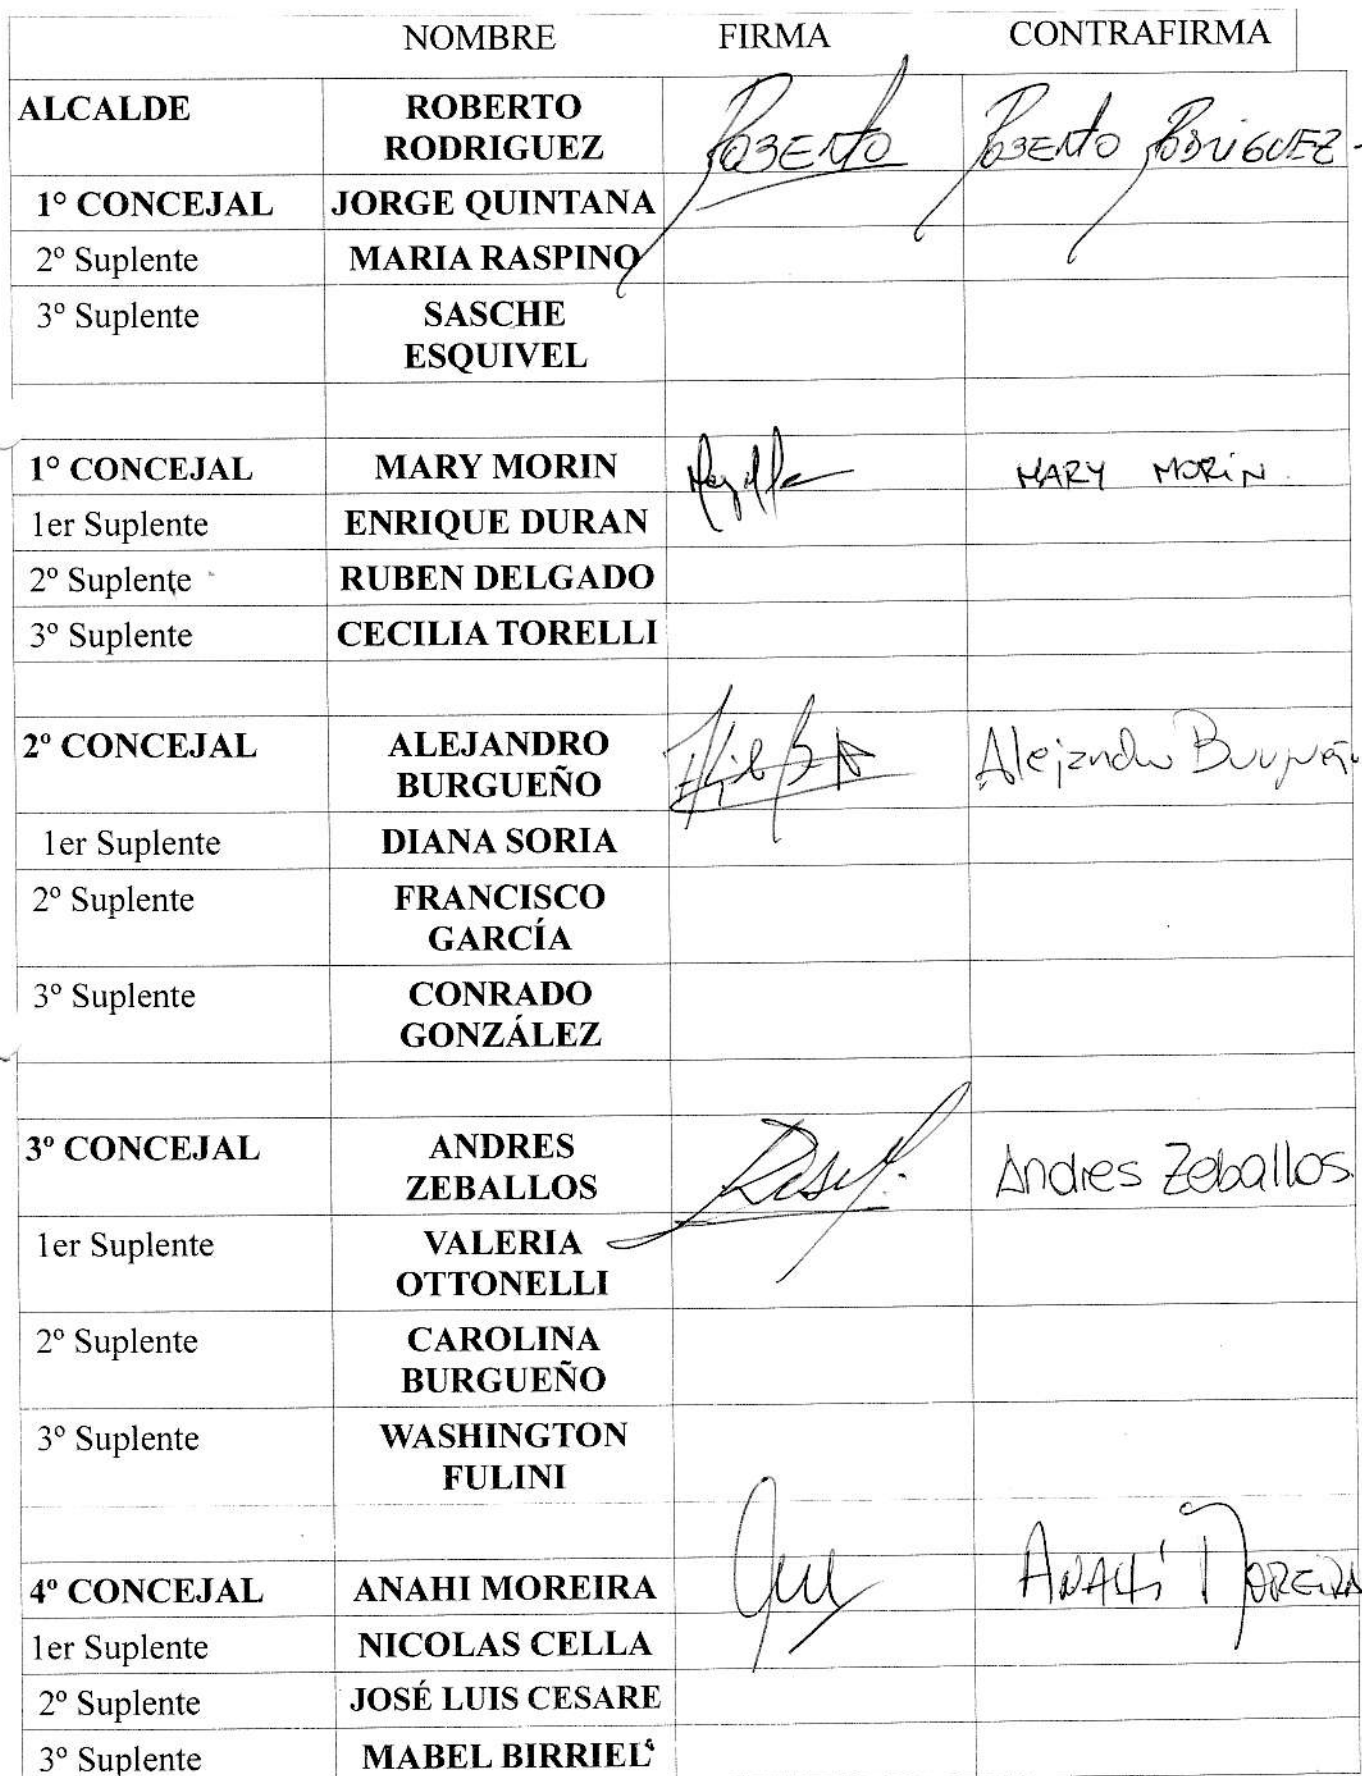 NOMBRE FIRMA CONTRAFIRMA
ALCALDE ROBERTO
RODRIGUEZ Roberto Roberto Rodriguez
1° CONCEJAL JORGE QUINTANA
2º Suplente MARIA RASPINO
3º Suplente SASCHE
ESQUIVEL
1° CONCEJAL MARY MORIN MARY MORIN.
1er Suplente ENRIQUE DURAN
2º Suplente RUBEN DELGADO
3º Suplente CECILIA TORELLI
2º CONCEJAL ALEJANDRO
BURGUEÑO Alejandro Burgueño
1er Suplente DIANA SORIA
2º Suplente FRANCISCO
GARCÍA
3º Suplente CONRADO
GONZÁLEZ
3º CONCEJAL ANDRES
ZEBALLOS Andres Zeballos.
1er Suplente VALERIA
OTTONELLI
2º Suplente CAROLINA
BURGUEÑO
3º Suplente WASHINGTON
FULINI
4º CONCEJAL ANAHI MOREIRA ANAHÍ MOREIRA
1er Suplente NICOLAS CELLA
2º Suplente JOSÉ LUIS CESARE
3º Suplente MABEL BIRRIEL